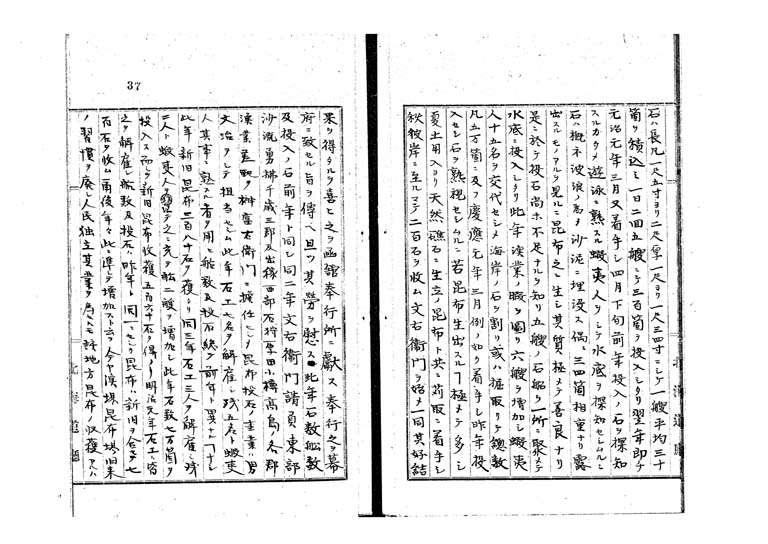 石ハ長凡一尺五寸ヨリ二尺厚一尺ヨリ一尺三四寸ニシテ一艘平均三十
箇ヲ積込ミ一日二回五艘ニテ三百箇ヲ投入シタリ翌年即チ
元治元年三月又着手シ四月下旬前年投入ノ石ヲ探知
スルカタメ游泳ニ熟スル蝦夷人ヲシテ水底ヲ探知セシムルニ
石ハ概ネ波浪ノ為メ沙泥ニ埋没ス偶ニ三四箇相重ナリ露
出スルモノアルヲ見ルニ昆布之ニ生シ其質極メテ善良ナリ
是ニ於テ投石尚ホ不足ナルヲ知リ五艘ノ石船ヲ一所ニ聚メテ
水底ニ投入シタリ此年漁業ノ暇ヲ圖リ六艘ヲ増加シ蝦夷
人十五名ヲ交代セシメ海岸ノ石ヲ割リ或ハ極取リテ總数
凡五万箇ニ及フ慶應元年三月例ノ如ク着手シ昨年投
入セシ石ヲ熟視セシムルニ若昆布生出スルヿ極メテ多シ
夏土用入ヨリ天然ノ礁石ニ生立ノ昆布ト共ニ苅取ニ着手シ
秋彼岸ニ至ルマテ二百石ヲ收ム文右衛門ヲ始メ一同其好結
果ヲ得タルヲ喜ヒ之ヲ函館奉行所ニ獻ス奉行之ヲ幕
府ニ致セル旨ヲ傳ヘ且ツ其勞ヲ慰ス此年石数舩数
及投入ノ石前年ト同シ同二年文右衛門請負東部
沙流勇拂千歳三郡及出稼西部石狩厚田小樽高島ノ各郡
漁業差配ヲ榊冨右衛門ニ擔任セシメ昆布投石ノ事業ハ男
文治ヲシテ担当セシム此年石工七名ヲ解雇シ残五名ト蝦夷
人其事ニ熟スル者ヲ用ヒ船数及投石総テ前年ト異ナルヿナシ
此年新旧昆布三百八十石ヲ獲タリ同三年石工三人ヲ解雇シ残
二人ト蝦夷人ヲ以テ之ニ充テ舩二艘ヲ増加シ此年石数七万箇ヲ
投入ス而シテ新旧昆布收穫五百六十石ヲ得タリ明治元年石工ハ皆
之ヲ解雇シ船数及投石ハ昨年ト同一ニシテ昆布ハ新旧ヲ合セテ七
百石ヲ收ム爾後年々此ニ準シテ増加ストモ今ヤ漁場昆布場旧来
ノ習慣ヲ廃シ人民独立其業ヲ為スモ該地方昆布ノ收獲アルハ
37